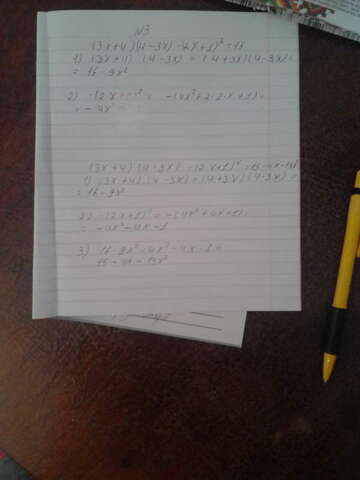 N3
(3x+4)(4-3x)-(2x+1)²=15
1) (3x+4) (4-3x) = (4+3x)(4-3x)=
= 16-9x²
2) -(2x+1)² = -(4x²+2·2·x+1)=
= -4x²
(3x+4)(4-3x)-(2x+1)²=15-4x-13x²
1) (3x+4)(4-3x)=(4+3x)(4-3x)=
= 16-9x²
2) -(2x+1)²=-(4x²+4x+1)=
= -4x²-4x-1
3) 16-9x²-4x²-4x-1=
15-4x-13x²